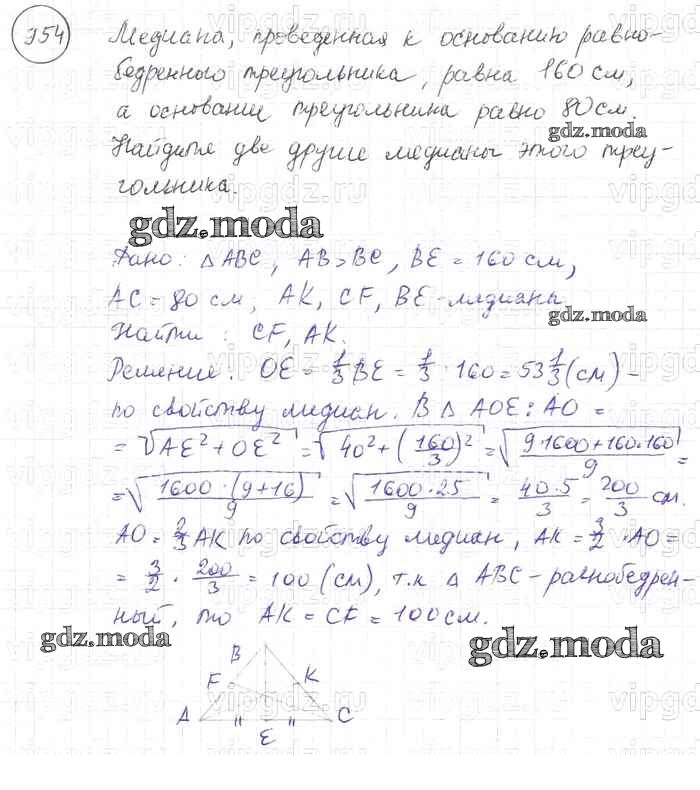 954
Медиана, проведенная к основанию равно-
бедренного треугольника, равна 160 см,
а основание треугольника равно 80 см.
gdz.moda
Найдите две другие медианы этого треу-
гольника.
gdz.moda
Дано: △ ABC, AB > BC, BE = 160 см,
AC = 80 см, AK, CF, BE - медианы
gdz.moda
Найти: CF, AK.
Решение. OE = 1/3 BE = 1/3 · 160 = 53 1/3 (см) -
по свойству медиан. В △ AOE: AO =
= √(AE² + OE²) = √(40² + (160/3)²) = √((9·1600+160·160)/9) =
= √((1600·(9+16))/9) = √((1600·25)/9) = (40·5)/3 = 200/3 см.
AO = 2/3 AK по свойству медиан, AK = 3/2 · AO =
= 3/2 · 200/3 = 100 (см), т.к △ ABC - равнобедрен-
ный, то AK = CF = 100 см.
gdz.moda
gdz.moda
B
F
K
A
C
E